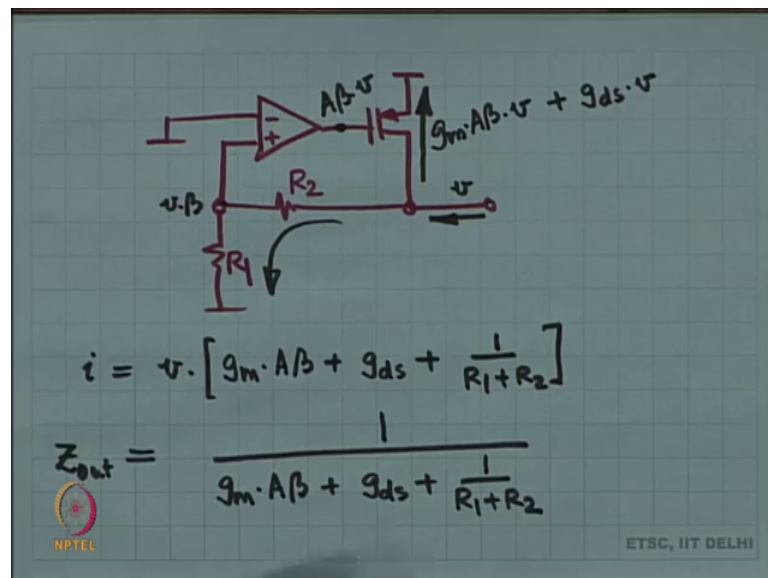 Aβ·v
gm·Aβ·v + gds·v
-
+
R2
v
v·β
R1
i = v·[gm·Aβ + gds + 1/(R1+R2)]
Zout = 1/(gm·Aβ + gds + 1/(R1+R2))
NPTEL
ETSC, IIT DELHI